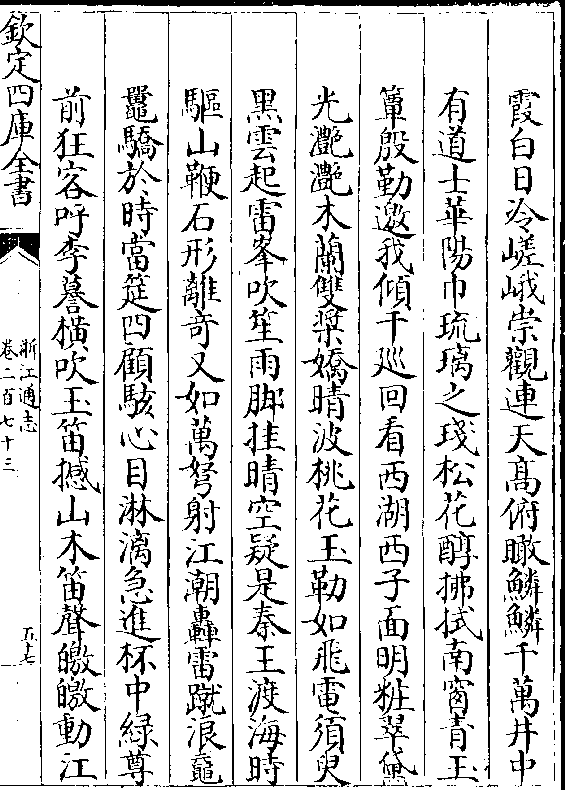 霞白日冷嵯峨崇觀連天髙俯瞰鱗鱗千萬井中
有道士華陽巾琉璃之琖松花醇拂拭南窗青玉
簟殷勤邀我傾千巡回看西湖西子面明粧翠黛
光灔灔木蘭雙槳嬌晴波桃花玉勒如飛電須臾
黒雲起雷峯吹笙雨脚挂晴空疑是秦王渡海時
驅山鞭石形離竒又如萬弩射江潮轟雷蹴浪黿
鼉驕於時當筵四顧駭心目淋漓急進杯中緑尊
前狂客呼李謩横吹玉笛撼山木笛聲皦皦動江
欽定四庫全書
浙江通志
卷二百七十三
五十七